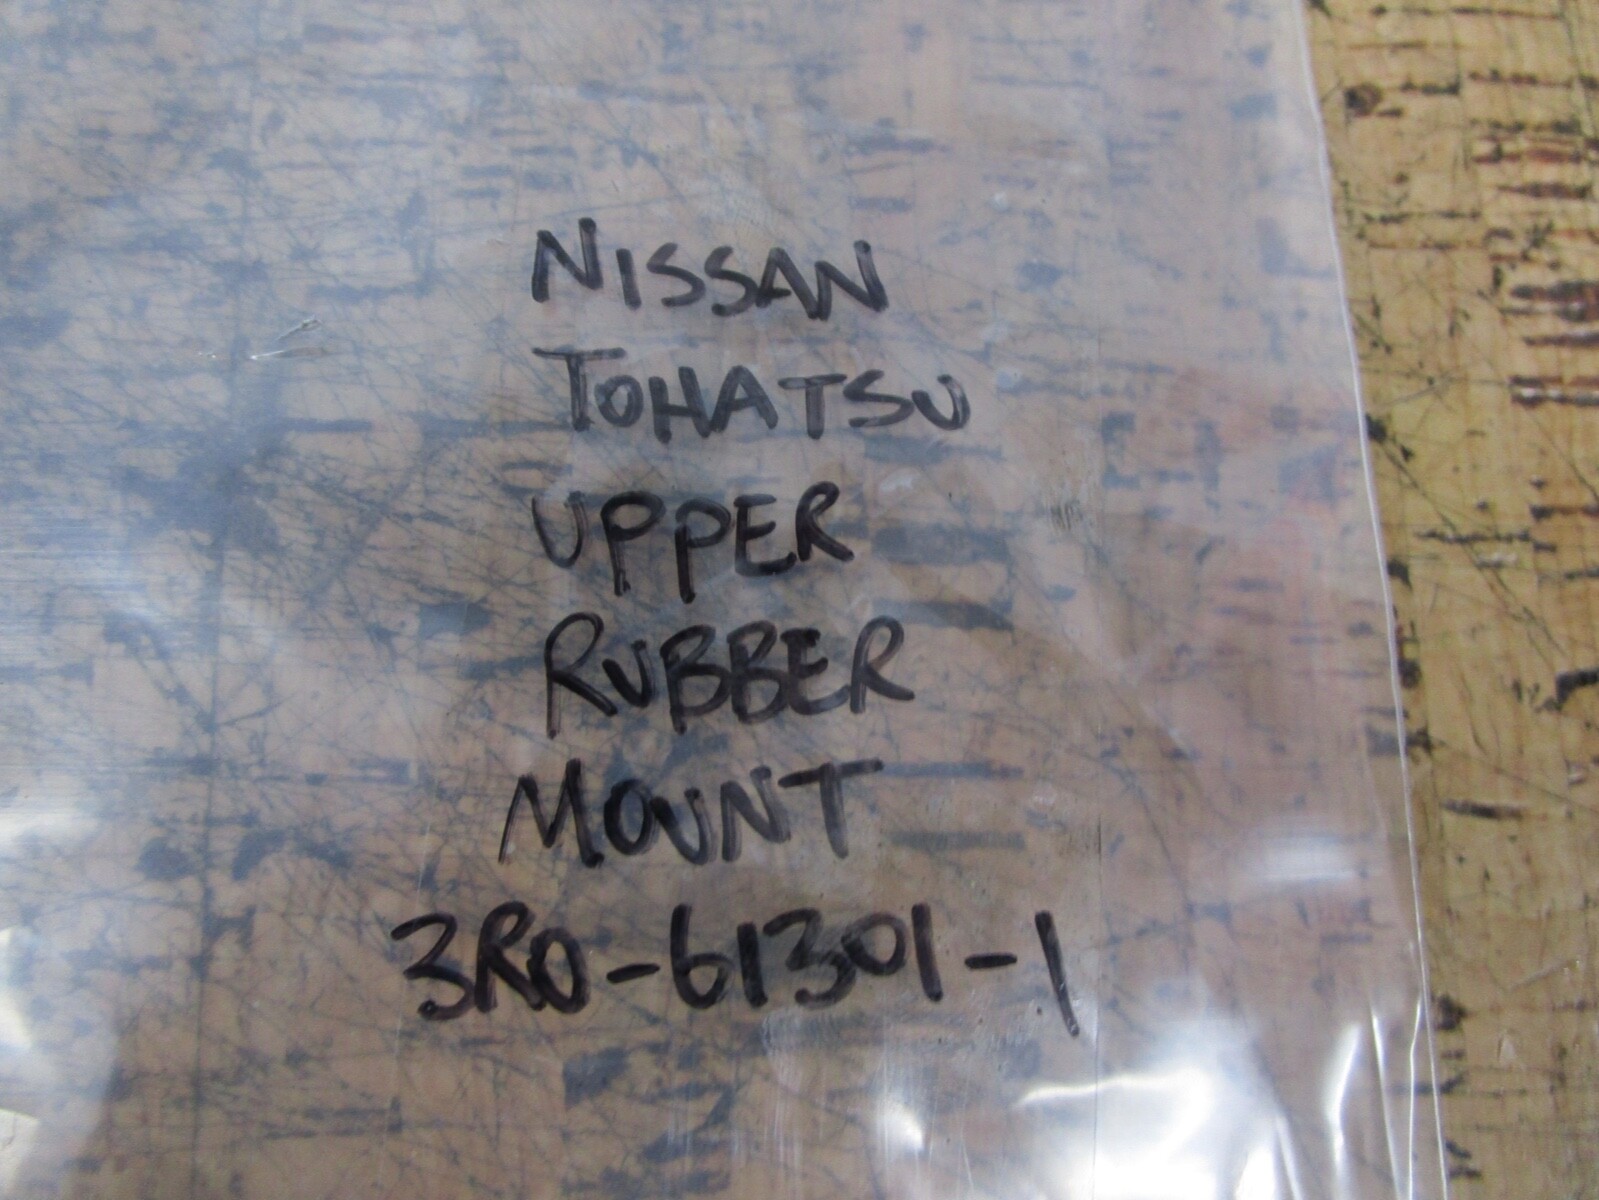 NISSAN
TOHATSU
UPPER
RUBBER
MOUNT
3R0-61301-1